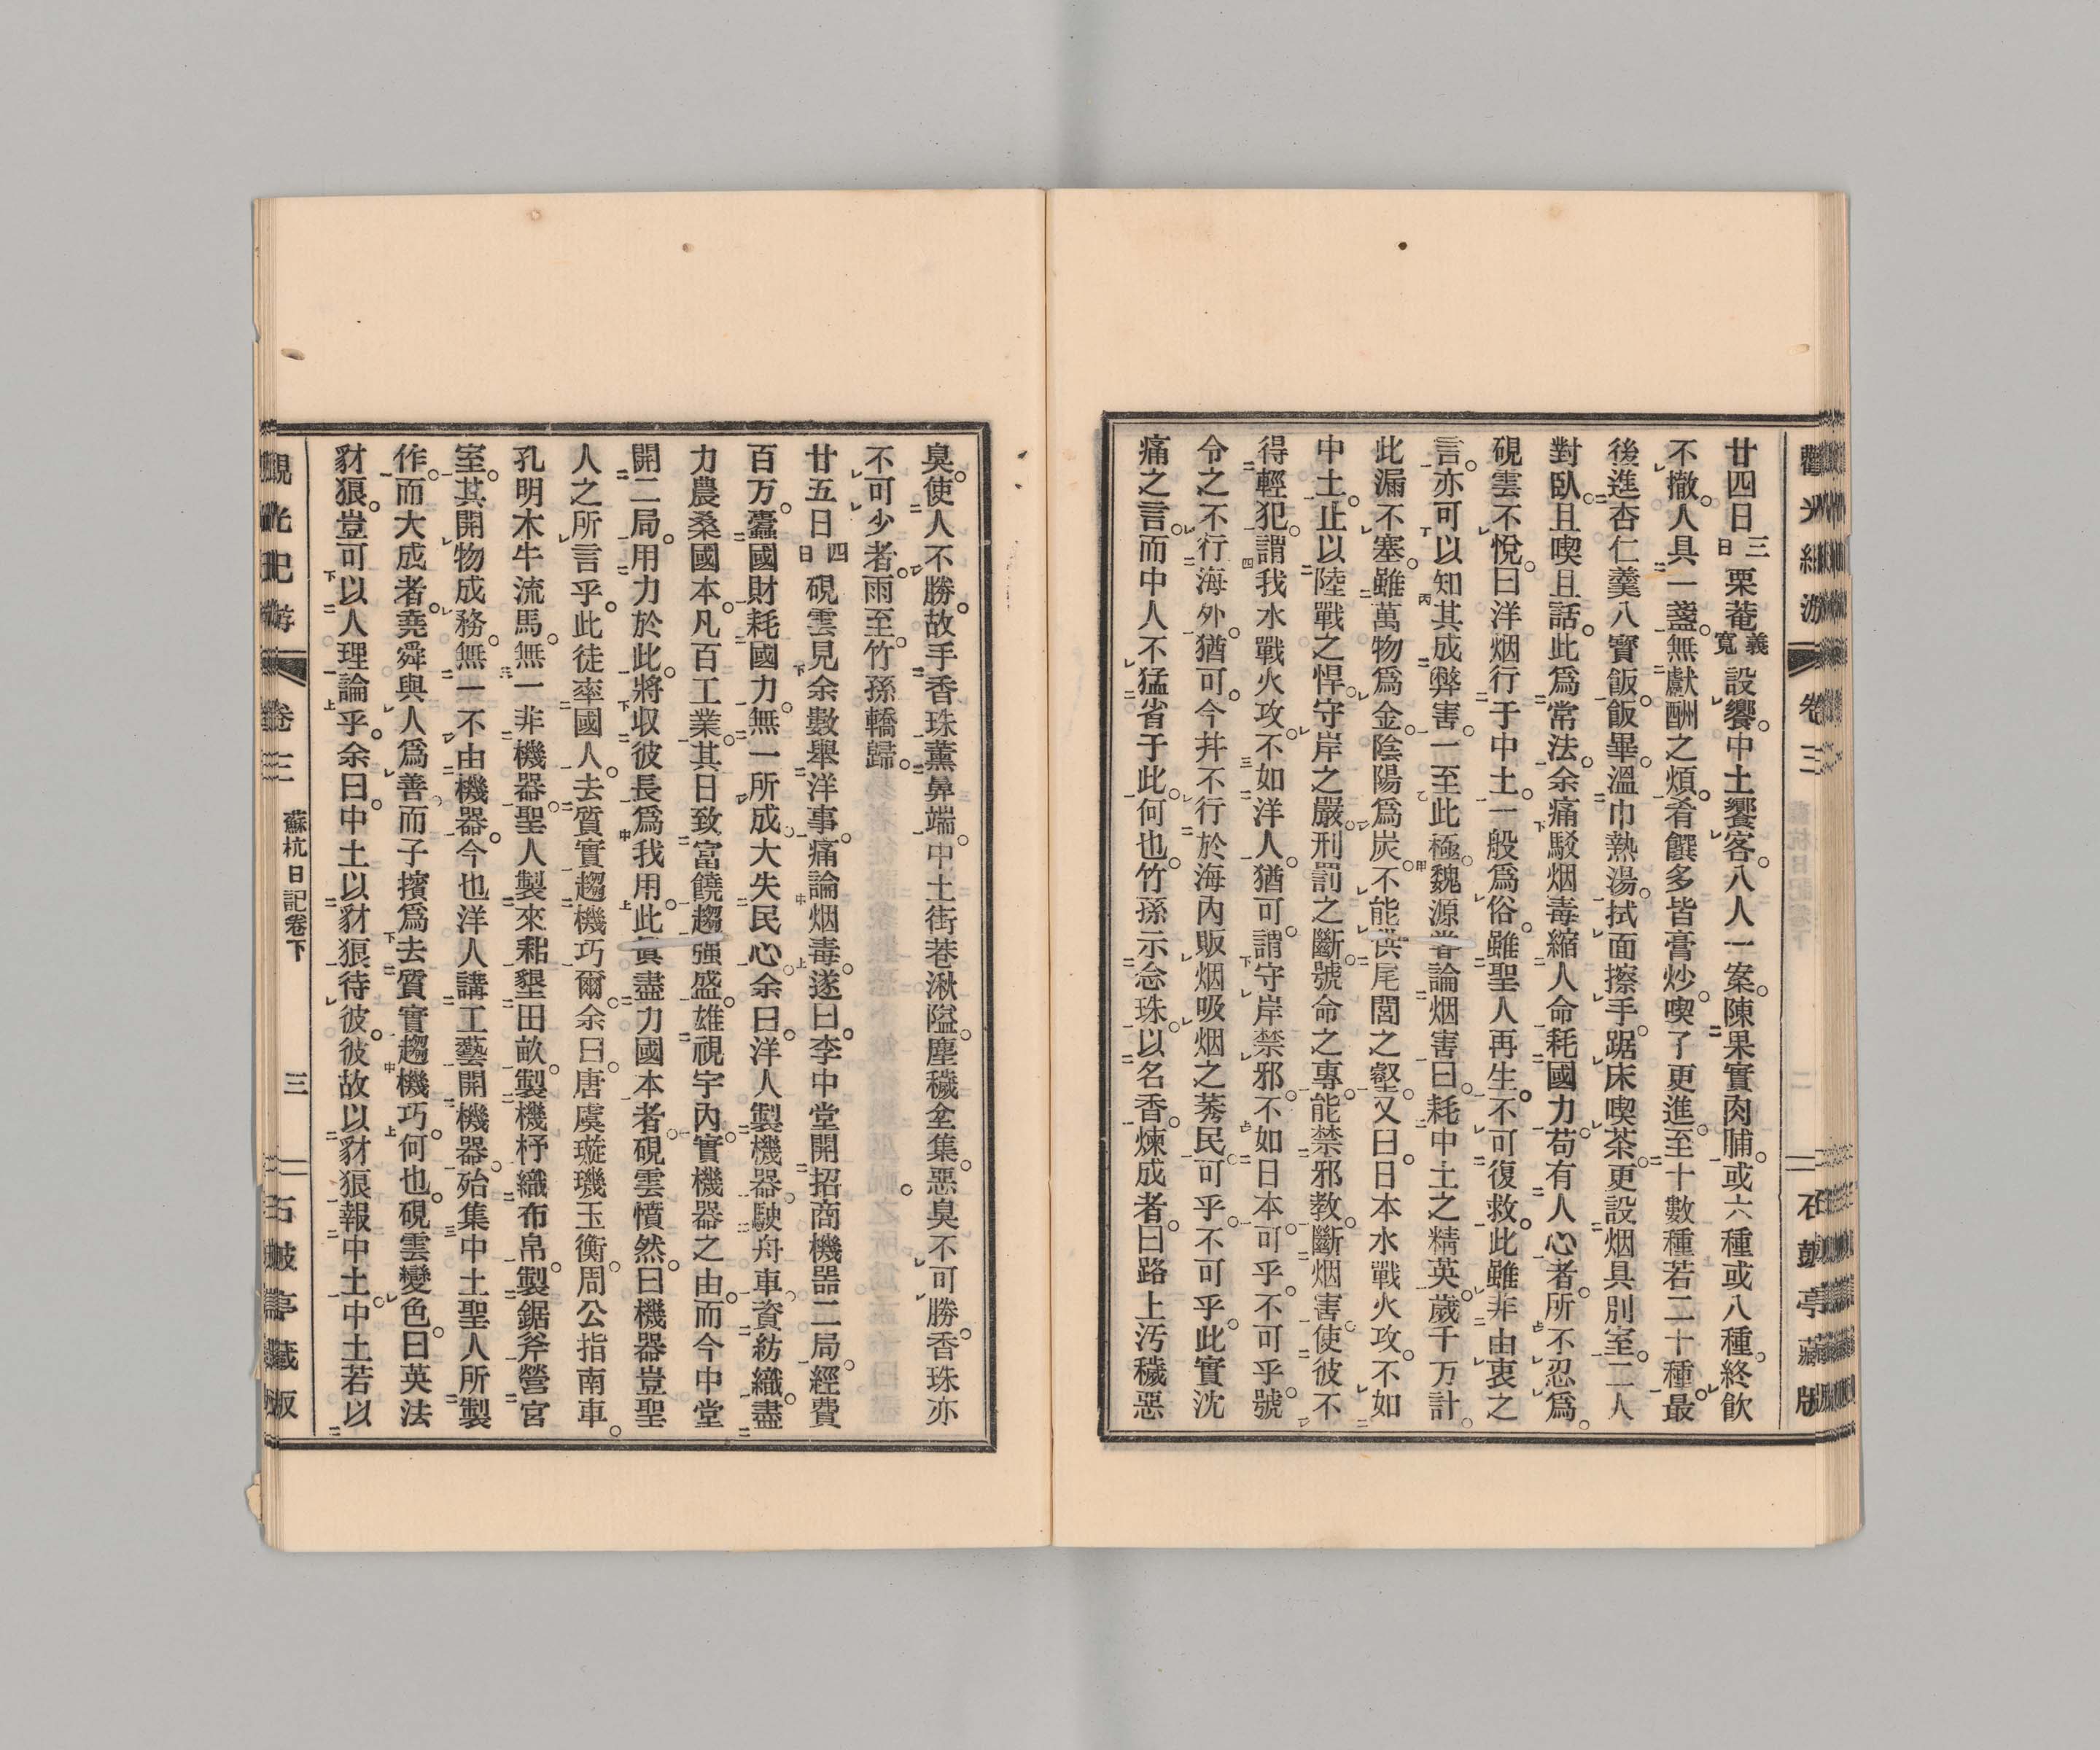 廿四日三日栗菴義寬設饗。中土饗客。八人一案。陳果實肉脯。或六種或八種。終飲
不撤。人具一盞。無獻酬之煩。肴饌多皆膏炒。喫了更進。至十數種若二十種。最
後進杏仁羹八寶飯。飯畢。溫巾熱湯。拭面擦手。踞床喫茶。更設烟具別室。二人
對臥。且喫且話。此爲常法。余痛駁烟毒縮人命耗國力。苟有人心者。所不忍爲。
硯雲不悅。曰洋烟行于中土。一般爲俗。雖聖人再生。不可復救。此雖非由衷之
言。亦可以知其成弊害。一至此極。魏源嘗論烟害曰。耗中土之精英。歲千万計。
此漏不塞。雖萬物爲金。陰陽爲炭。不能供尾閭之壑。又曰。日本水戰火攻。不如
中土。止以陸戰之悍。守岸之嚴。刑罰之斷。號命之專。能禁邪教。斷烟害。使彼不
得輕犯。謂我水戰火攻。不如洋人。猶可。謂守岸禁邪。不如日本。可乎。不可乎。號
令之不行海外。猶可。今并不行於海內販烟吸烟之莠民。可乎。不可乎。此實沈
痛之言。而中人不猛省于此。何也。竹孫示念珠。以名香煉成者。曰路上汚穢惡
臭。使人不勝。故手香珠薰鼻端。中土街巷湫隘。塵穢坌集。惡臭不可勝。香珠亦
不可少者。雨至。竹孫轎歸。
廿五日四日硯雲見余數舉洋事。痛論烟毒。遂曰。李中堂開招商機器二局。經費
百万。蠹國財耗國力。無一所成。大失民心。余曰。洋人製機器。駛舟車。資紡織。盡
力農桑國本。凡百工業。其日致富饒。趨强盛。雄視宇內。實機器之由。而今中堂
開二局。用力於此。將収彼長爲我用。此眞盡力國本者。硯雲憤然。曰機器豈聖
人之所言乎。此徒率國人。去質實趨機巧爾。余曰。唐虞璇璣玉衡。周公指南車。
孔明木牛流馬。無一非機器。聖人製來耜墾田畝。製機杼織布帛。製鋸斧營宮
室。其開物成務。無一不由機器。今也洋人講工藝開機器。殆集中土聖人所製
作。而大成者。堯舜與人爲善。而子擯爲去質實趨機巧。何也。硯雲變色。曰英法
豺狼。豈可以人理論乎。余曰。中土以豺狼待彼。彼故以豺狼報中土。中土若以
觀光紀游 卷三 蘇杭日記卷下 三 石鼓亭藏版